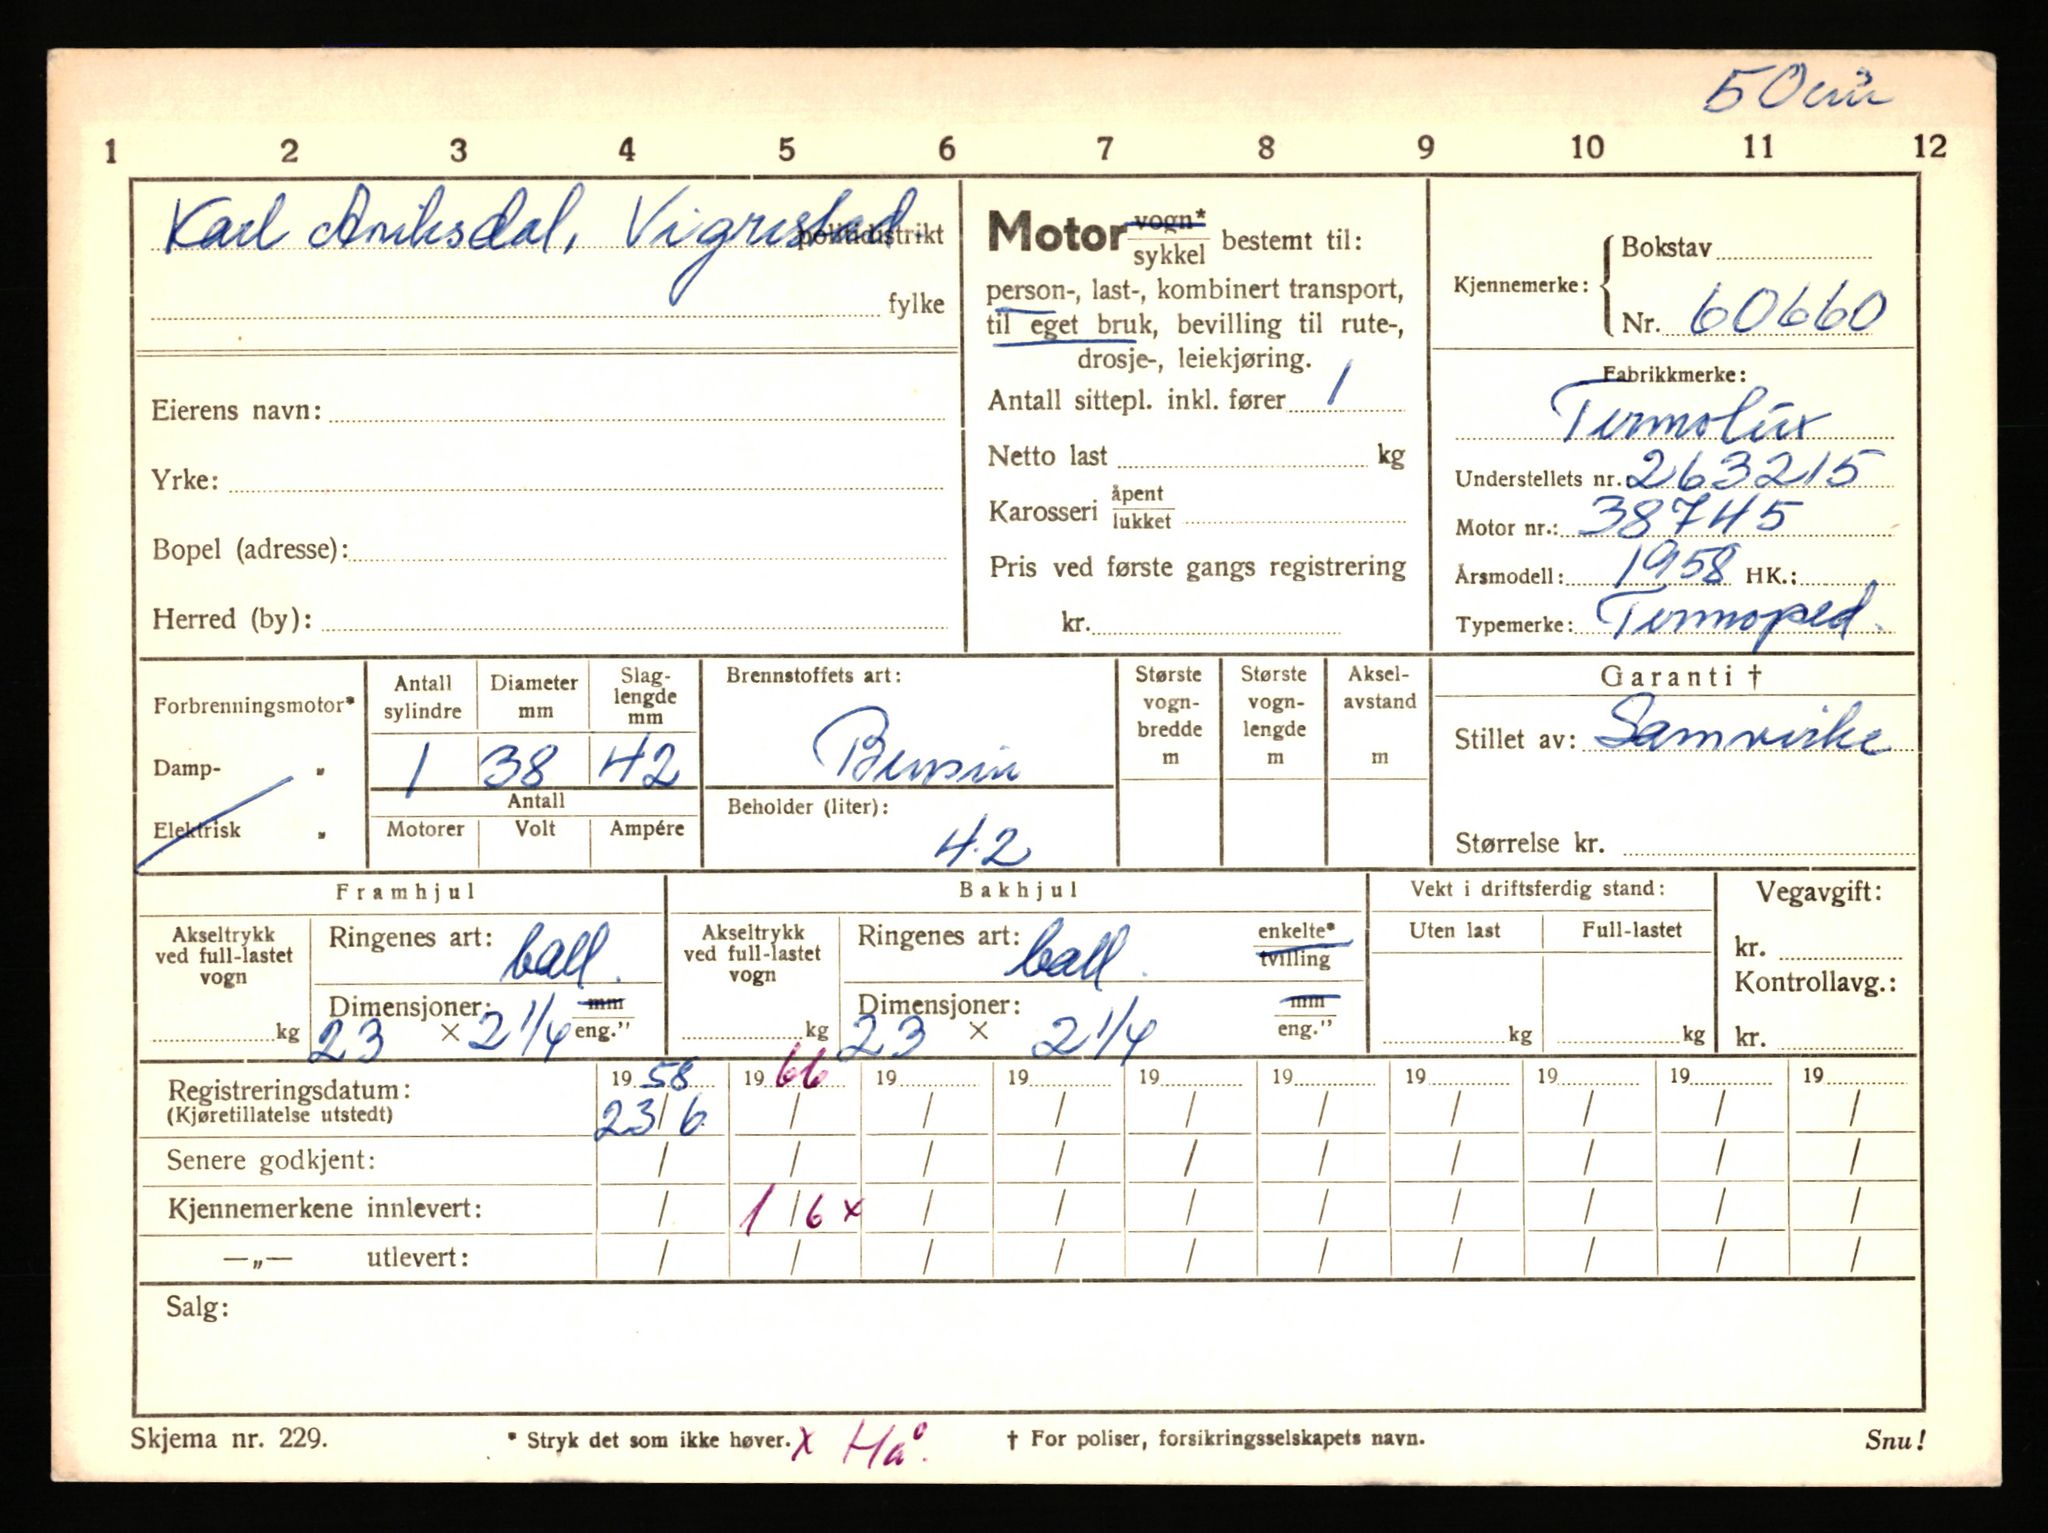 50 cm³
1 2 3 4 5 6 7 8 9 10 11 12
Karl Aniksdal, Vigrestad politidistrikt
fylke
Eierens navn:
Yrke:
Bopel (adresse):
Herred (by):
Motor vogn* sykkel bestemt til:
person-, last-, kombinert transport,
til eget bruk, bevilling til rute-,
drosje-, leiekjøring.
Antall sittepl. inkl. fører 1
Netto last kg
Karosseri åpent lukket
Pris ved første gangs registrering
kr.
Kjennemerke: Bokstav
Nr. 60660
Fabrikkmerke:
Termolux
Understellets nr.: 263215
Motor nr.: 38745
Årsmodell: 1958 HK.:
Typemerke: Termoped.
Forbrenningsmotor*
Damp- „
Elektrisk „
Antall sylindre Diameter mm Slaglengde mm
1 38 42
Antall
Motorer Volt Ampére
Brennstoffets art:
Bensin
Beholder (liter):
4.2
Største vognbredde m
Største vognlengde m
Akselavstand m
Garanti †
Stillet av: Samvirke
Størrelse kr.
Framhjul
Akseltrykk ved full-lastet vogn
kg
Ringenes art: ball.
Dimensjoner: mm
23 × 2 1/4 eng."
Bakhjul
Akseltrykk ved full-lastet vogn
kg
Ringenes art: ball. enkelte* tvilling
Dimensjoner: mm
23 × 2 1/4 eng."
Vekt i driftsferdig stand:
Uten last Full-lastet
kg kg
Vegavgift:
kr.
Kontrollavg.:
kr.
Registreringsdatum: 1958 1966 19 19 19 19 19 19 19 19
(Kjøretillatelse utstedt) 23/6 / / / / / / / / /
Senere godkjent: / / / / / / / / / /
Kjennemerkene innlevert: / 1/6 x / / / / / / / /
—„— utlevert: / / / / / / / / / /
Salg:
Skjema nr. 229. * Stryk det som ikke høver. x Hå. † For poliser, forsikringsselskapets navn. Snu!